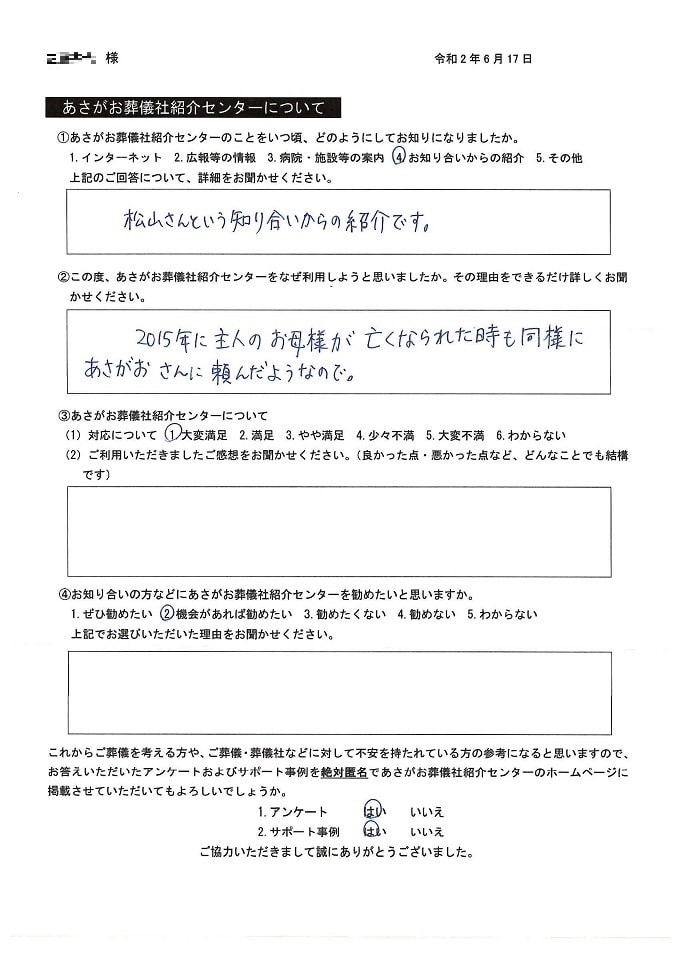 様
令和2年6月17日
あさがお葬儀社紹介センターについて
①あさがお葬儀社紹介センターのことをいつ頃、どのようにしてお知りになりましたか。
1.インターネット 2.広報等の情報 3.病院・施設等の案内 4.お知り合いからの紹介 5.その他
上記のご回答について、詳細をお聞かせください。
松山さんという知り合いからの紹介です。
②この度、あさがお葬儀社紹介センターをなぜ利用しようと思いましたか。その理由をできるだけ詳しくお聞
かせください。
2015年に主人のお母様が亡くなられた時も同様に
あさがおさんに頼んだようなので。
③あさがお葬儀社紹介センターについて
(1) 対応について 1.大変満足 2.満足 3.やや満足 4.少々不満 5.大変不満 6.わからない
(2) ご利用いただきましたご感想をお聞かせください。(良かった点・悪かった点など、どんなことでも結構
です)
④お知り合いの方などにあさがお葬儀社紹介センターを勧めたいと思いますか。
1.ぜひ勧めたい 2.機会があれば勧めたい 3.勧めたくない 4.勧めない 5.わからない
上記でお選びいただいた理由をお聞かせください。
これからご葬儀を考える方や、ご葬儀・葬儀社などに対して不安を持たれている方の参考になると思いますので、
お答えいただいたアンケートおよびサポート事例を絶対匿名であさがお葬儀社紹介センターのホームページに
掲載させていただいてもよろしいでしょうか。
1.アンケート はい いいえ
2.サポート事例 はい いいえ
ご協力いただきまして誠にありがとうございました。